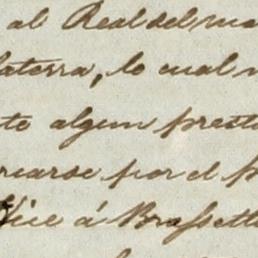 al Real del
laterra, lo cual
te algun presta
rcarse por el p
Vice á Brassetti